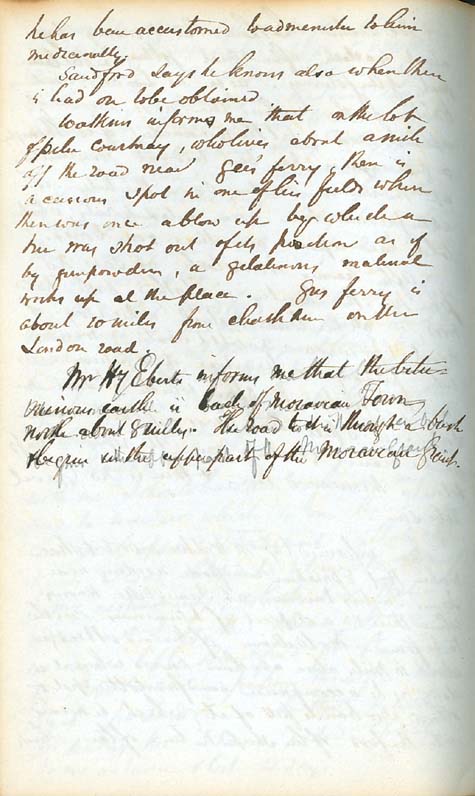 he has been accustomed to administer to him
medicinally.
Sandford says he knows also when there
is had on to be obtained
Watkins informs me that on the lot
of Peter Courtnay, who lives about a mile
off the road near Gee's ferry, there is
a curious spot in one of his fields where
there was once a blow up by which a
tree was shot out of its position as if
by gunpowder, a gelatinous material
works up at the place. Gees ferry is
about 20 miles from Chatham on the
London road
Mr Hy Eberts informs me that the bitu-
minous earth is back of Moravian Town,
north about 8 miles. The road to it is through a bush
& begins in the upper part of the Moravian Grant.